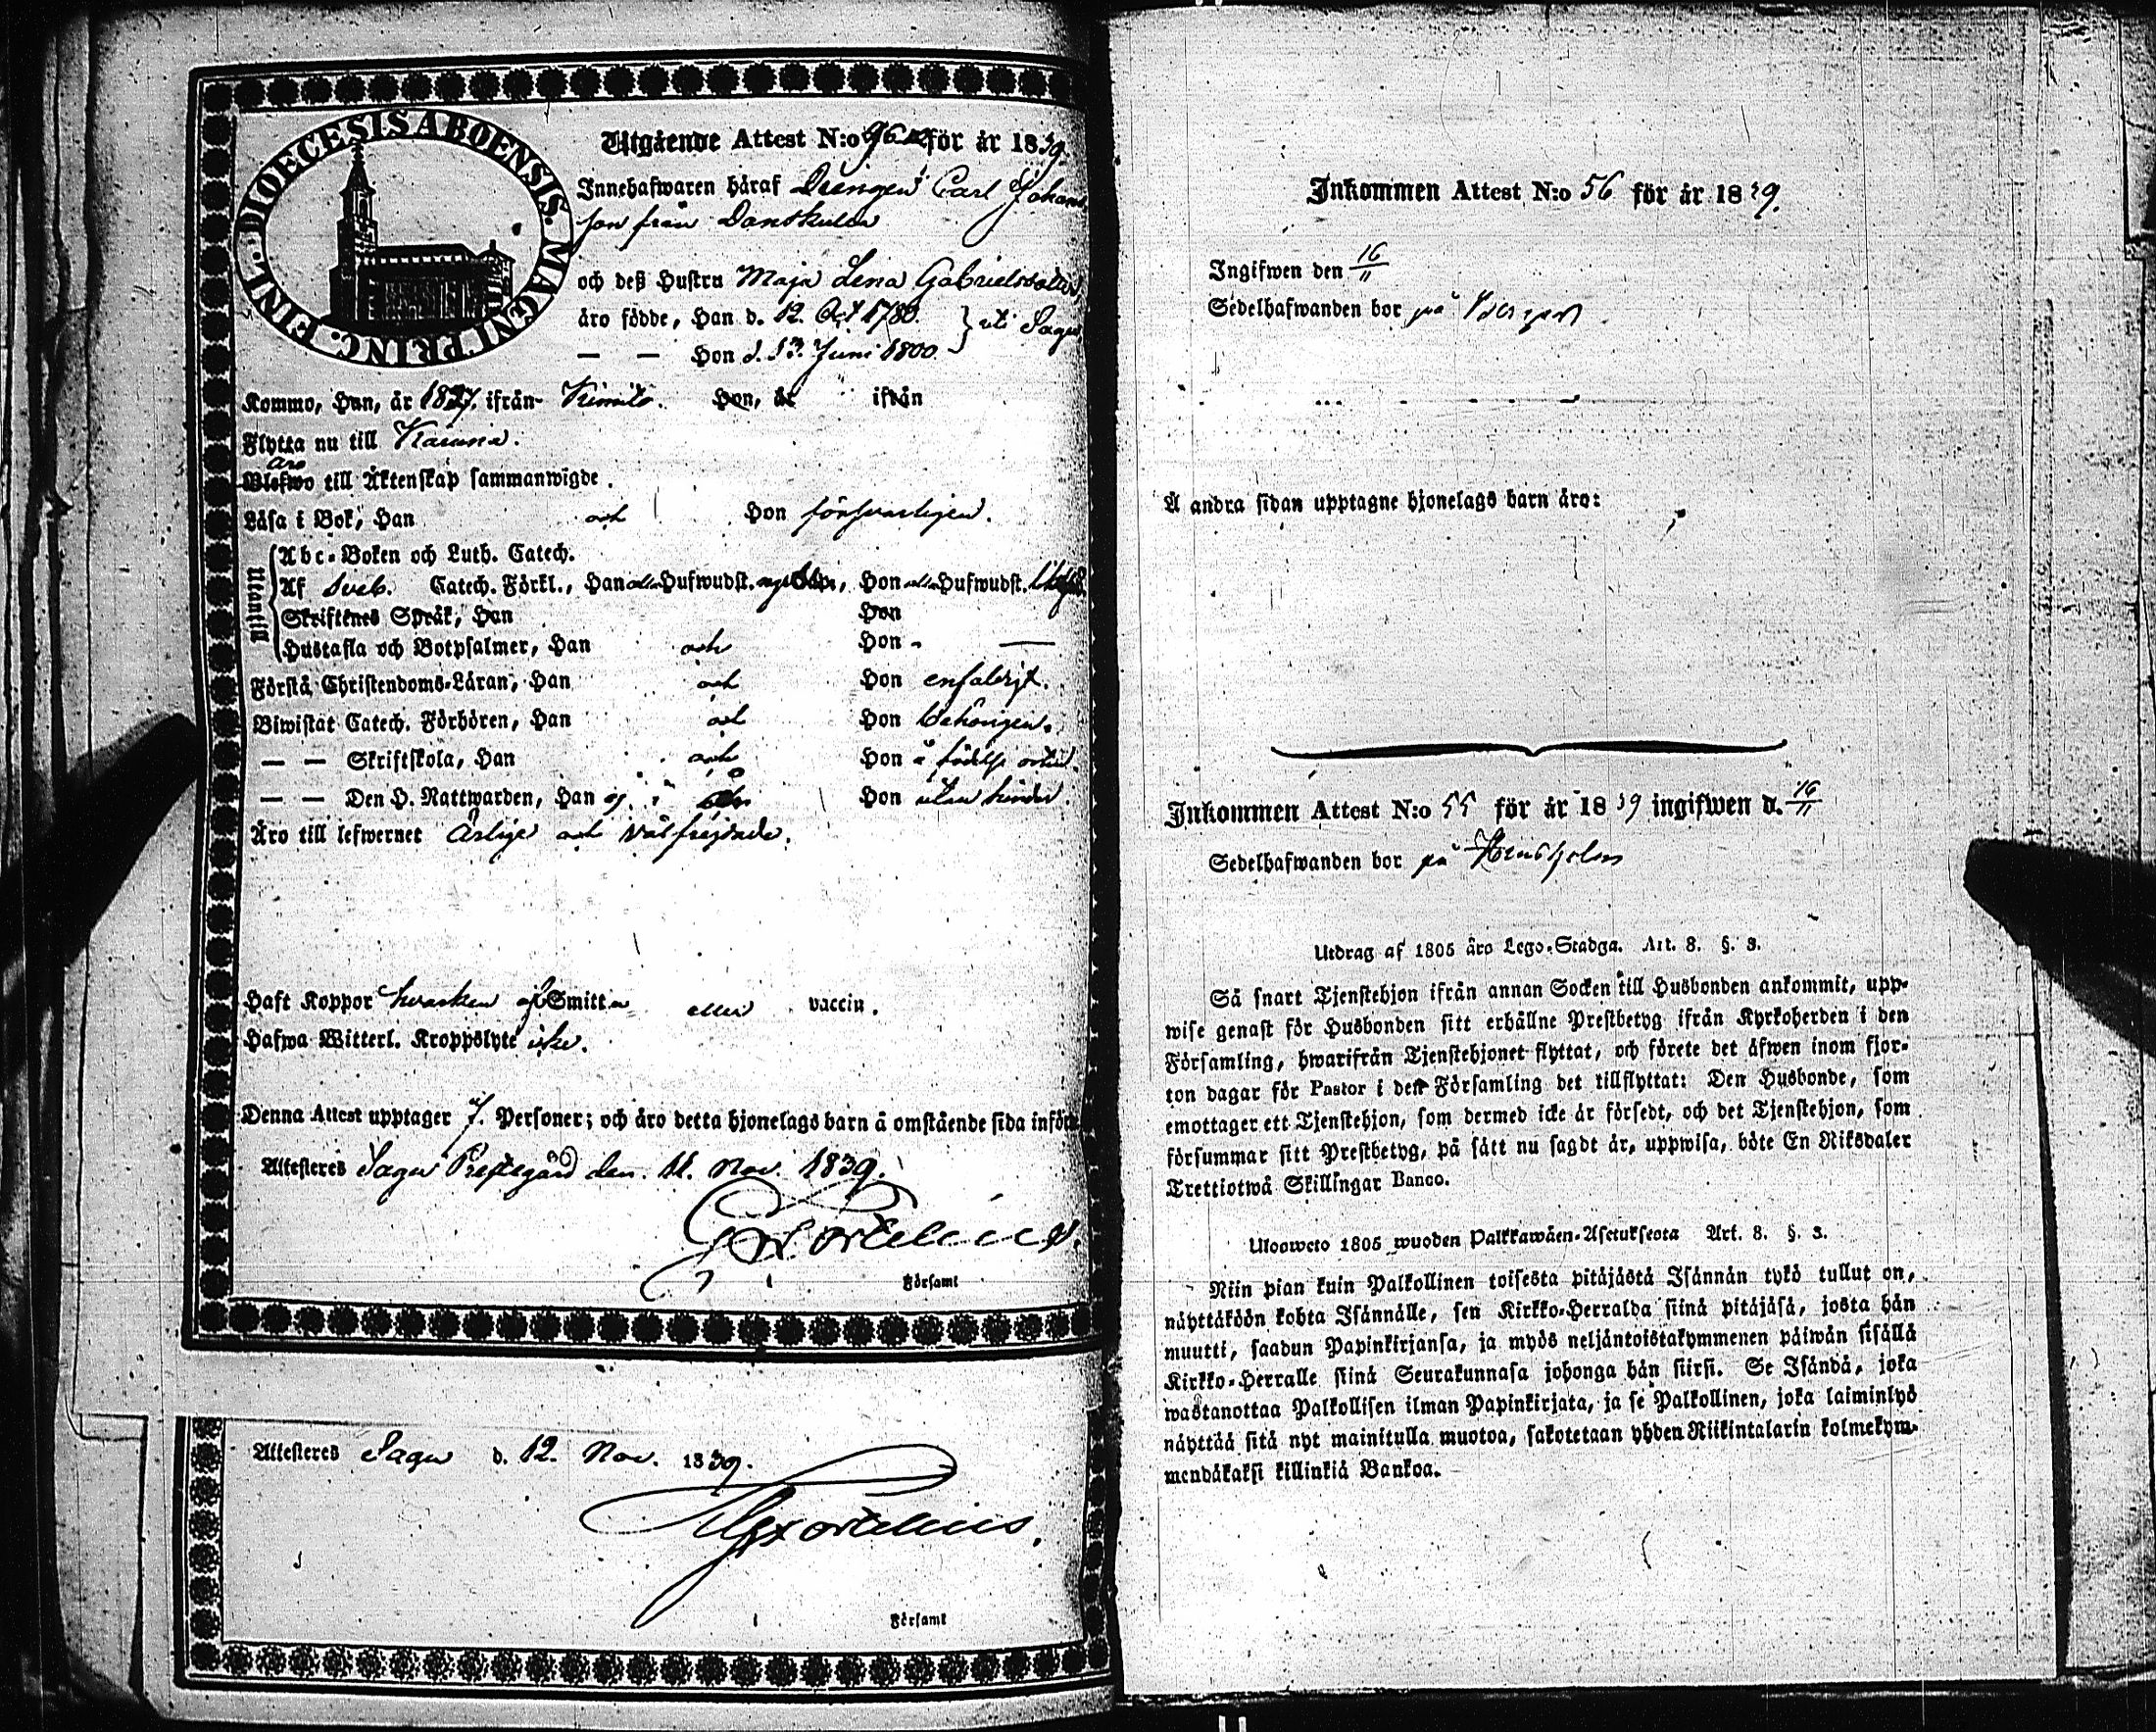 DIOECESIS ABOENSIS. MAGNI PRINC. FINL.
Utgående Attest N:o 96 för år 1839.
Innehafwaren häraf Drengen Carl Johans
son från Danskulla
och deß Hustru Maja Lena Gabrielsdotter
äro födde, Han d. 12. Oct 1780. } uti Sagu
— — Hon d. 13. Juni 1800.
Kommo, Han, år 1827. ifrån Kimito. Hon, år ifrån
Flytta nu till Karuna.
äro
Blefwo till Äktenskap sammanwigde.
Läsa i Bok, Han och Hon försvarligen.
Utantill
Abc-Boken och Luth. Catech.
Af Sveb. Catech. Förkl., Han alla Hufwudst. Hon alla Hufwudst.
Skriftenes Språk, Han Hon
Hustafla och Botpsalmer, Han och Hon - —
Förstå Christendoms-Läran, Han och Hon enfaldigt.
Biwistat Catech. Förhören, Han och Hon behörigen.
— — Skriftskola, Han och Hon å födelse orten.
— — Den H. Nattwarden, Han och Hon utan hinder.
Äro till lefwernet Ärlige och välfrejdade.
Haft Koppor hvarken af Smitta eller vaccin.
Hafwa Witterl. Kroppslyte icke.
Denna Attest upptager 7. Personer; och äro detta hjonelags barn å omstående sida införde
Attesteras Sagu Prestegård den 11. Nov. 1839.
i Församl
Attesteres Sagu d. 12. Nov. 1839.
i Församl
Inkommen Attest N:o 56 för år 1839.
Ingifwen den 16/11
Sedelhafwanden bor på
Å andra sidan upptagne hjonelags barn äro:
Inkommen Attest N:o 55 för år 1839 ingifwen d. 16/11
Sedelhafwanden bor på
Utdrag af 1805 års Lego-Stadga. Art. 8. §. 3.
Så snart Tjenstehjon ifrån annan Socken till Husbonden ankommit, upp-
wise genast för Husbonden sitt erhållne Prestbetyg ifrån Kyrkoherden i den
Församling, hwarifrån Tjenstehjonet flyttat, och förete det äfwen inom fjor-
ton dagar för Pastor i den Församling det tillflyttat: Den Husbonde, som
emottager ett Tjenstehjon, som dermed icke är försedt, och det Tjenstehjon, som
försummar sitt Prestbetyg, på sätt nu sagdt är, uppwisa, böte En Riksdaler
Trettiotwå Skillingar Banco.
Uloosweto 1805 wuoden Palkkawäen-Asetuksesta Art. 8. §. 3.
Niin pian kuin Palkollinen toisesta pitäjästä Isännän tykö tullut on,
näyttäköön kohta Isännälle, sen Kirkko-Herralda siinä pitäjäsä, josta hän
muutti, saadun Papinkirjansa, ja myös neljäntoistakymmenen päiwän sisällä
Kirkko-Herralle siinä Seurakunnasa johonga hän siirsi. Se Isändä, joka
wastanottaa Palkollisen ilman Papinkirjata, ja se Palkollinen, joka laiminlyö
näyttää sitä nyt mainitulla muotoa, sakotetaan yhden Riikintalarin kolmekym-
mendäkaksi killinkiä Bankoa.